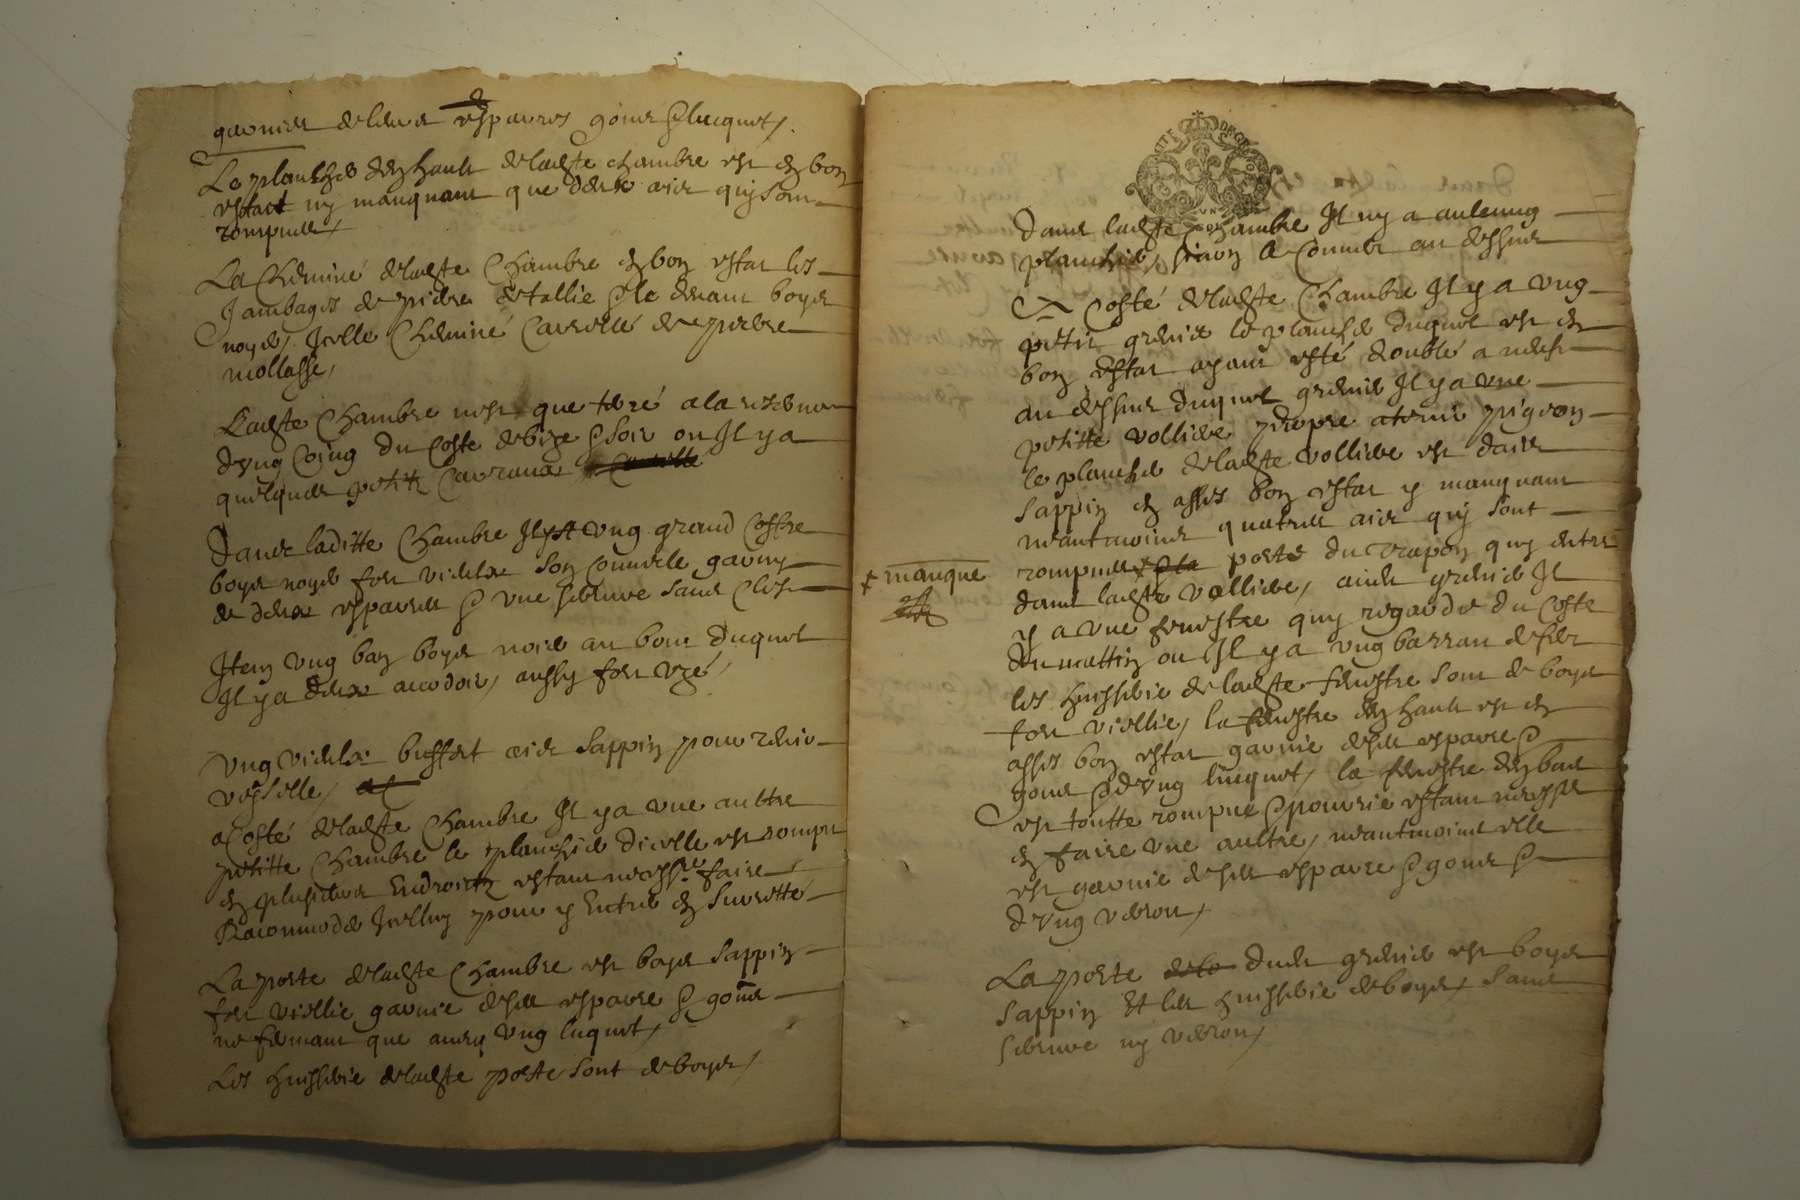 garnies de leurs espares gons & lucquet /.
Le planché d'en hault de ladte chambre est en bon
estact ny manquant que deux aix quy sont
rompues /
La Cheminé de ladte Chambre en bon estat les
Jambages de pierre de tallie & le devant boys
noyé / Jcelle Cheminé Carrellé de pierre
mollasse,
Ladte Chambre n'est que terré a la reserve
d'ung Coing du Coste de bize & soir ou Jl y a
quelques petitz Carraux
Dans laditte Chambre Jl y at ung grand Coffre
boys noyé fort vielx son couvercle garny
de deux espares & une serrure sans Clefz
Jtem ung ban boys noié au bout duquel
Jl y a deux accodoir / aussy fort uzé /
Ung vielx buffect aix sappin pour tenir
vesselle /
a Costé de ladte Chambre Jl y a une aultre
petitte Chambre le planché d'icelle est rompu
en plusieurs Endroictz estant necessre faire
Racommodé Jcelluy pour y Entré en surretté
La porte de ladte Chambre est boys sappin
fort viellie garnie de ses espares & gons
ne fermant que avecq ung luquet /
Les huisserie de ladte porte sont de boys /
Dans ladte Chambre Jl ny a aulcung
planché / sinon le Couvert au dessus
A Costé de ladte Chambre Jl y a ung
petit grenié le planché duquel est en
bon estat ayant esté doublé a neuf
au dessus duquel grenié Jl y a une
petitte volliere propre a tenir pigeon
le planché de ladte volliere est d'aix
sappin en asses bon estat y manquant
neantmoins quatres aix quy sont
rompues la porte du trapon quy entre
+ manque
dans ladte volliere, audt grenié Jl
y a une fenestre quy regarde du Costé
du mattin ou Jl y a ung barrau de fer
les huisserie de ladte fenestre sont de boys
fort viellie / la fenestre d'en hault est en
asses bon estat garnie de ses espares &
gons & d'ung lucquet / la fenestre d'en bas
est toutte rompue & pourrie estant necessre
en faire une aultre / neantmoins elle
est garnie de ses espares & gons &
d'ung verrou /
La porte dudt grenié est boys
sappin Et les huisserie de boys / sans
serrure ny verrou /